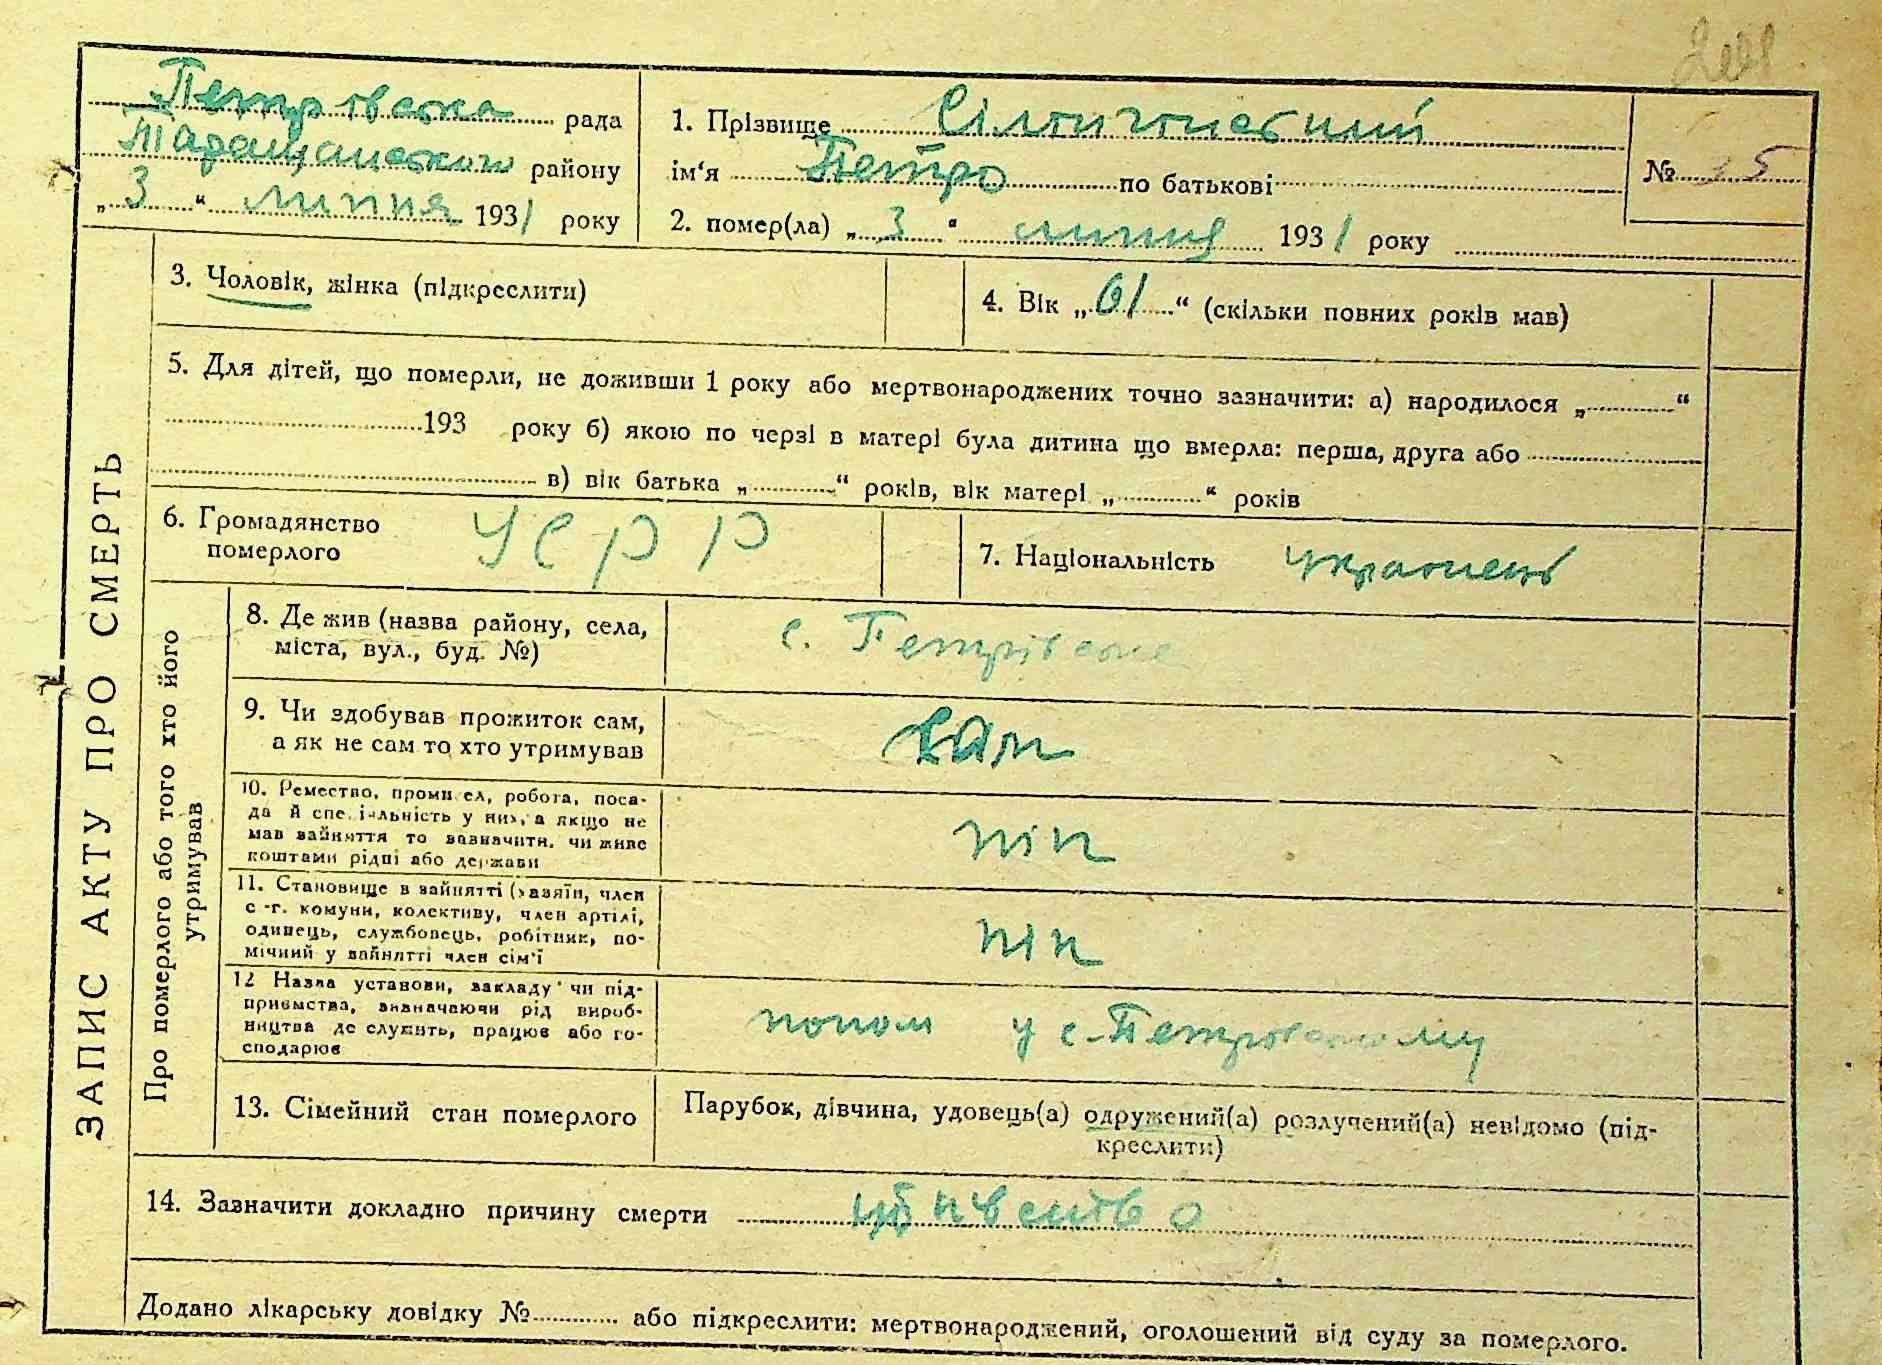 Петрівська рада
Таращанського району
„ 3 “ липня 1931 року
1. Прізвище
ім‘я Петро по батькові
2. помер(ла) „ 3 “ липня 1931 року
№ 35
3. Чоловік, жінка (підкреслити)
4. Вік „ 61 “ (скільки повних років мав)
5. Для дітей, що померли, не доживши 1 року або мертвонароджених точно зазначити: а) народилося „ “
193 року б) якою по черзі в матері була дитина що вмерла: перша, друга або
в) вік батька „ “ років, вік матері „ “ років
6. Громадянство
померлого
УСРР
7. Національність українець
ЗАПИС АКТУ ПРО СМЕРТЬ
Про померлого або того хто його
утримував
8. Де жив (назва району, села,
міста, вул., буд. №)
с. Петрівське
9. Чи здобував прожиток сам,
а як не сам то хто утримував
сам
10. Ремество, промисел, робота, поса-
да й спеціяльність у них, а якщо не
мав зайняття то зазначити, чи живе
коштами рідні або держави
піп
11. Становище в зайнятті (хазяїн, член
с.-г. комуни, колективу, член артілі,
одинець, службовець, робітник, по-
мічний у зайнятті член сім‘ї
піп
12 Назва установи, закладу чи під-
приємства, визначаючи рід вироб-
ництва де служить, працює або го-
сподарює
попом у с. Петрівському
13. Сімейний стан померлого
Парубок, дівчина, удовець(а) одружений(а) розлучений(а) невідомо (під-
креслити)
14. Зазначити докладно причину смерти убивство
Додано лікарську довідку № або підкреслити: мертвонароджений, оголошений від суду за померлого.